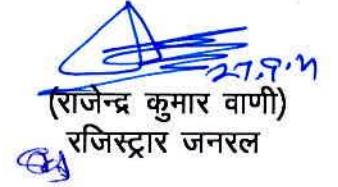 27.9.21
(राजेन्द्र कुमार वाणी)
रजिस्ट्रार जनरल